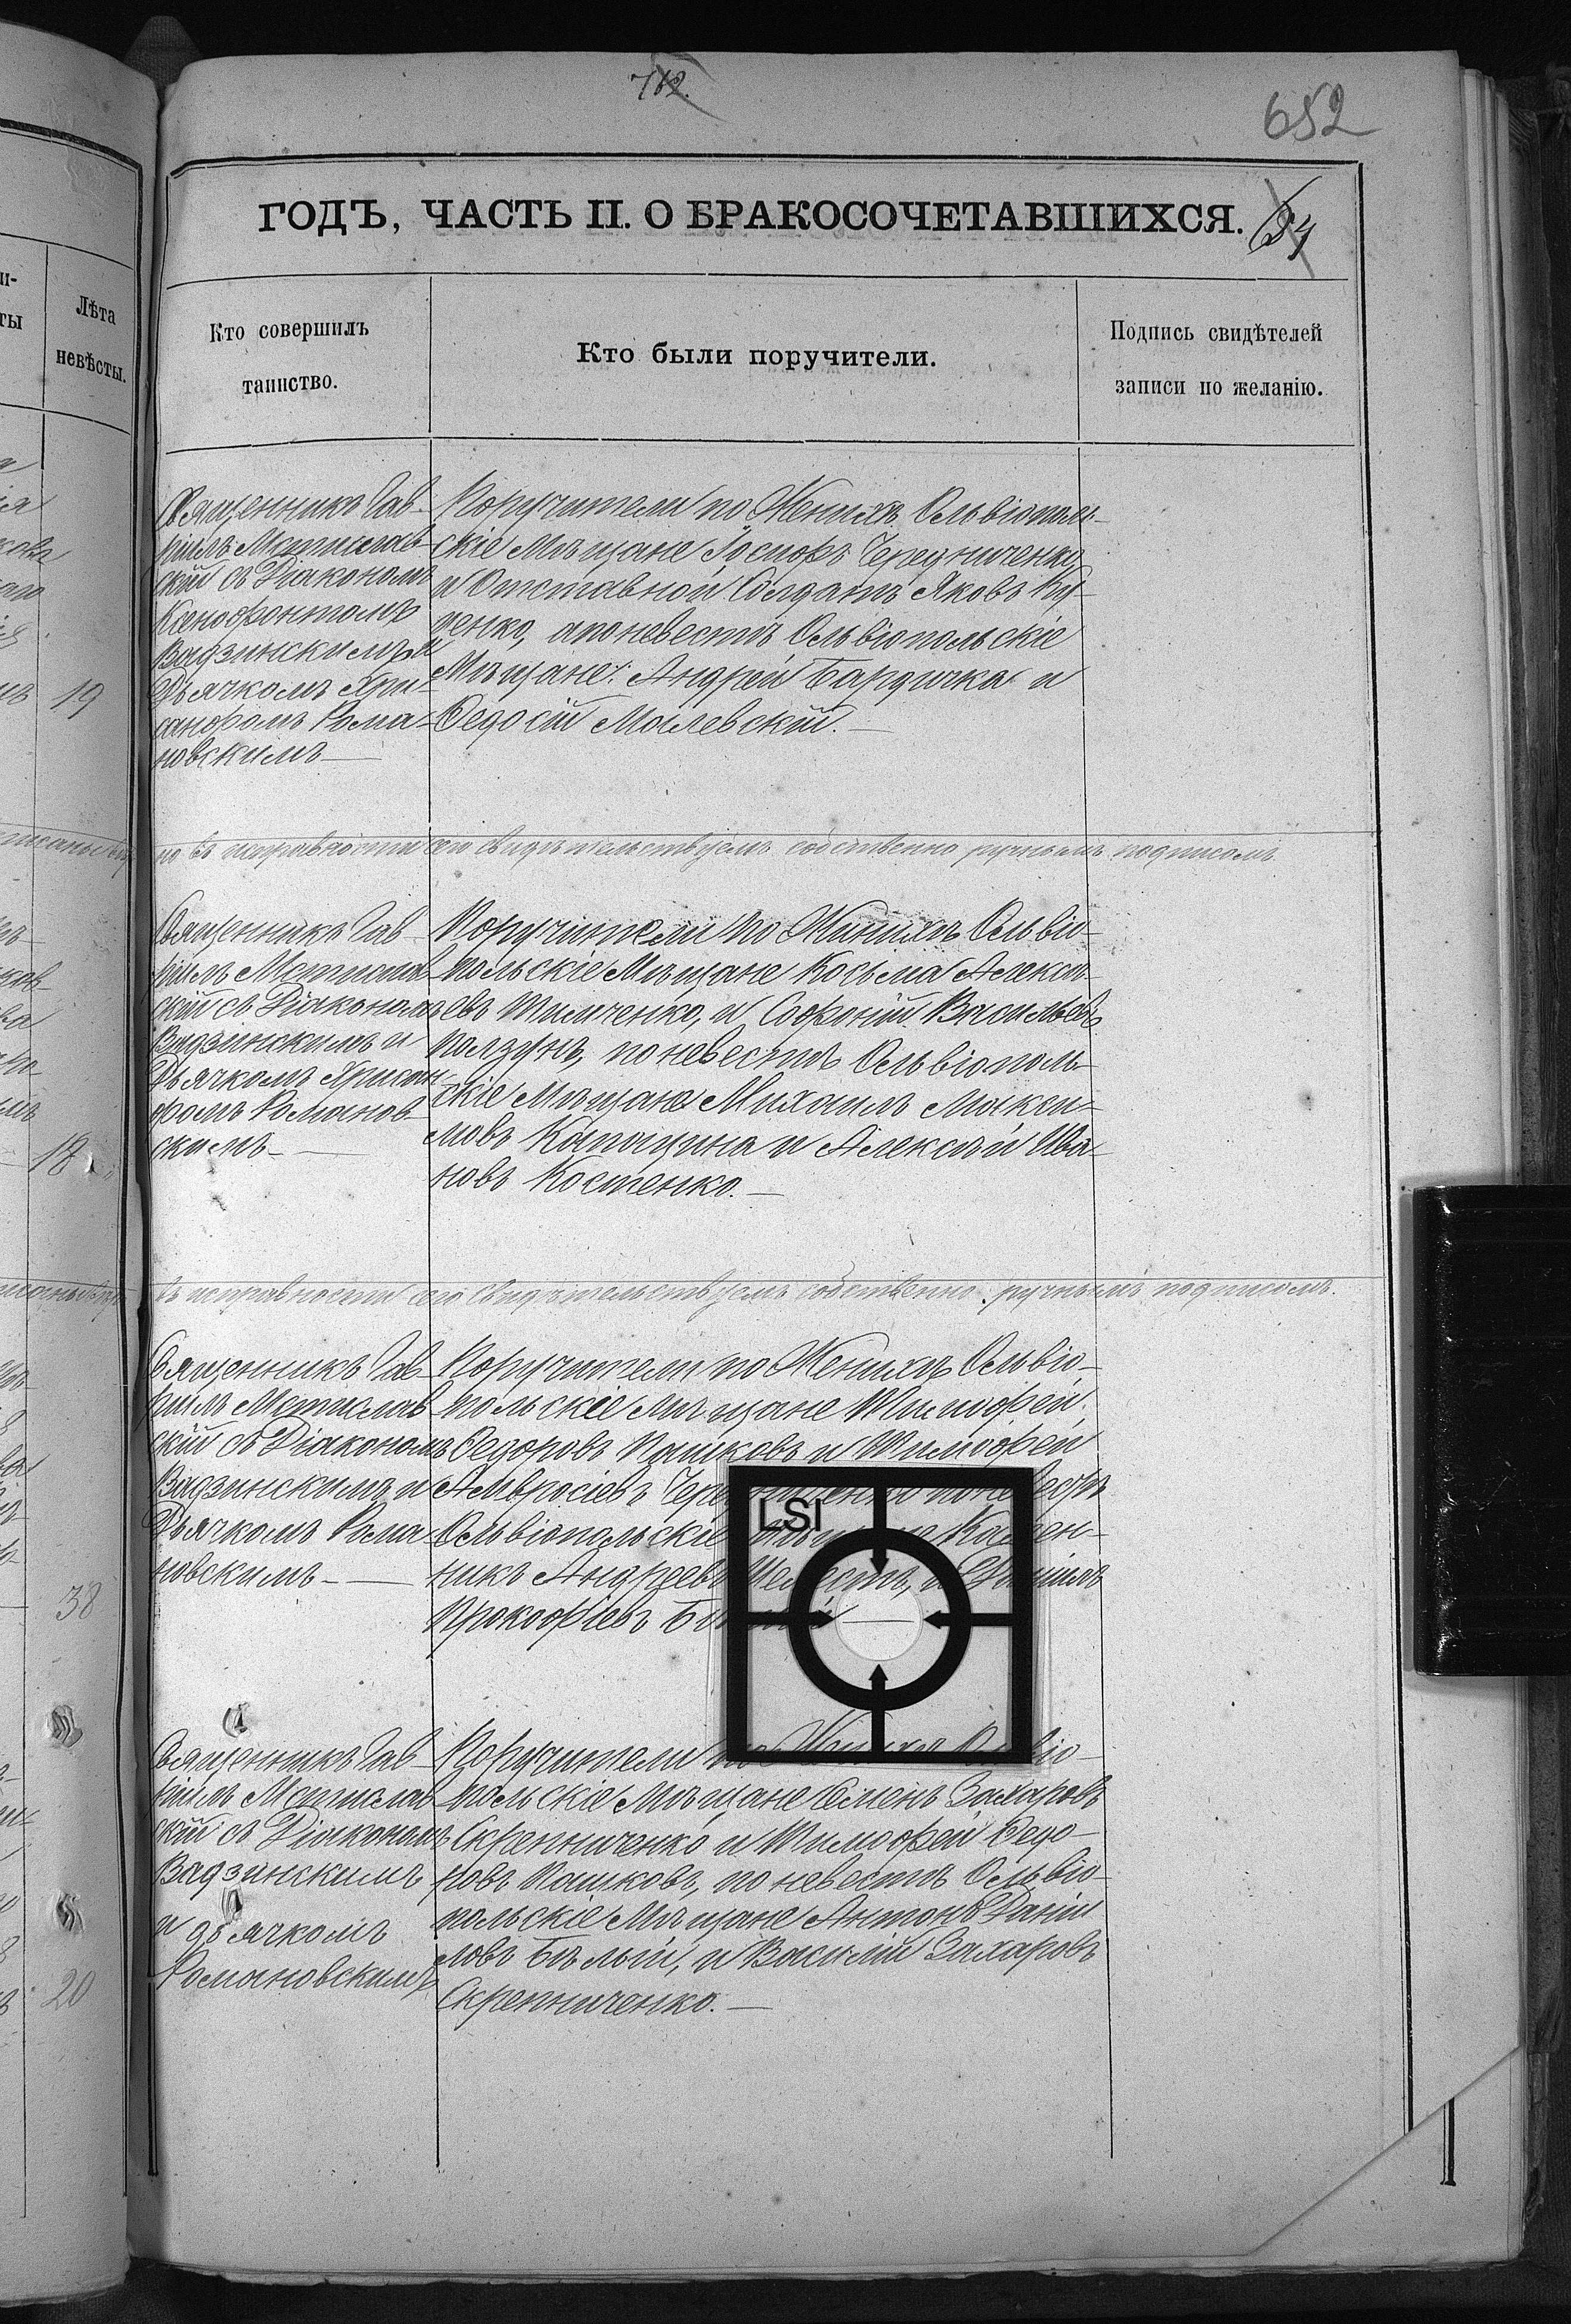 712.
652
ГОДЪ, ЧАСТЬ II. О БРАКОСОЧЕТАВШИХСЯ.
Лѣта
невѣсты.
Кто совершилъ
таинство.
Кто были поручители.
Подпись свидѣтелей
записи по желанію.
Священникъ Гав-
ріилъ Мстислав-
скій съ Діакономъ
Ксенофонтомъ
Вадзинскимъ и
Дьячкомъ Хри-
санфомъ Рома-
новскимъ
Поручители по Женихѣ Ольвіополь-
скіе Мѣщане Чередниченко,
и Отставной Солдатъ Яковъ
ченко, а по невестѣ Ольвіопольскіе
Мѣщане: Андрей Бардичка и
Ѳедосій Малевскій.
19
въ исправности сего свидѣтельствуемъ собственно ручнымъ подписомъ.
Священникъ Гав-
ріилъ Мстислав-
скій съ Діакономъ
Вадзинскимъ и
Дьячкомъ Хрисан-
фомъ Романов-
скимъ
Поручители по Женихѣ Ольвіо-
польскіе Мѣщане Косьма Алексѣ-
евъ Тимченко, и Софроній Васильевъ
Ползунъ, по невестѣ Ольвіополь-
скіе Мѣщане Михаилъ Макси-
мовъ Капацина и Алексѣй Ива-
новъ Костенко.
18
въ исправности сего свидѣтельствуемъ собственно ручнымъ подписомъ.
Священникъ Гав-
ріилъ Мстислав-
скій съ Діакономъ
Вадзинскимъ и
Дьячкомъ Рома-
новскимъ
Поручители по Женихѣ Ольвіо-
польскіе Мѣщане Тимофей
Ѳедоровъ Пашковъ и Тимофей
Амвросіевъ по невестѣ
Ольвіопольскіе
никъ Андреевъ и Даніилъ
Прокофіевъ
38
LSI
Священникъ Гав-
ріилъ Мстислав-
скій съ Діакономъ
Вадзинскимъ
и дьячкомъ
Романовскимъ
Поручители по Женихѣ Ольвіо-
польскіе Мѣщане Семенъ Захаровъ
Скрепниченко и Тимофей Ѳедо-
ровъ Пашковъ, по невестѣ Ольвіо-
польскіе Мѣщане Антонъ Даніи-
ловъ Бѣлый, и Василій Захаровъ
Скрепниченко.
20